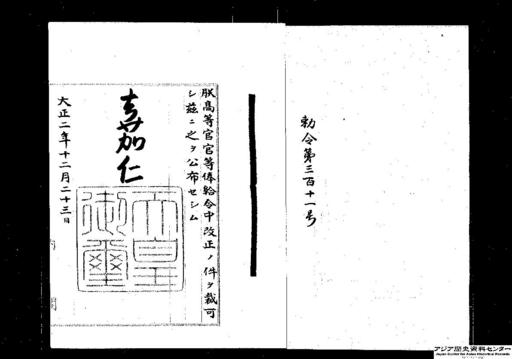 勅令第三百十一号
朕高等官官等俸給令中改正ノ件ヲ裁可
シ茲ニ之ヲ公布セシム
嘉仁
天皇御璽
大正二年十二月二十三日
内閣
アジア歴史資料センター
Japan Center for Asian Historical Records